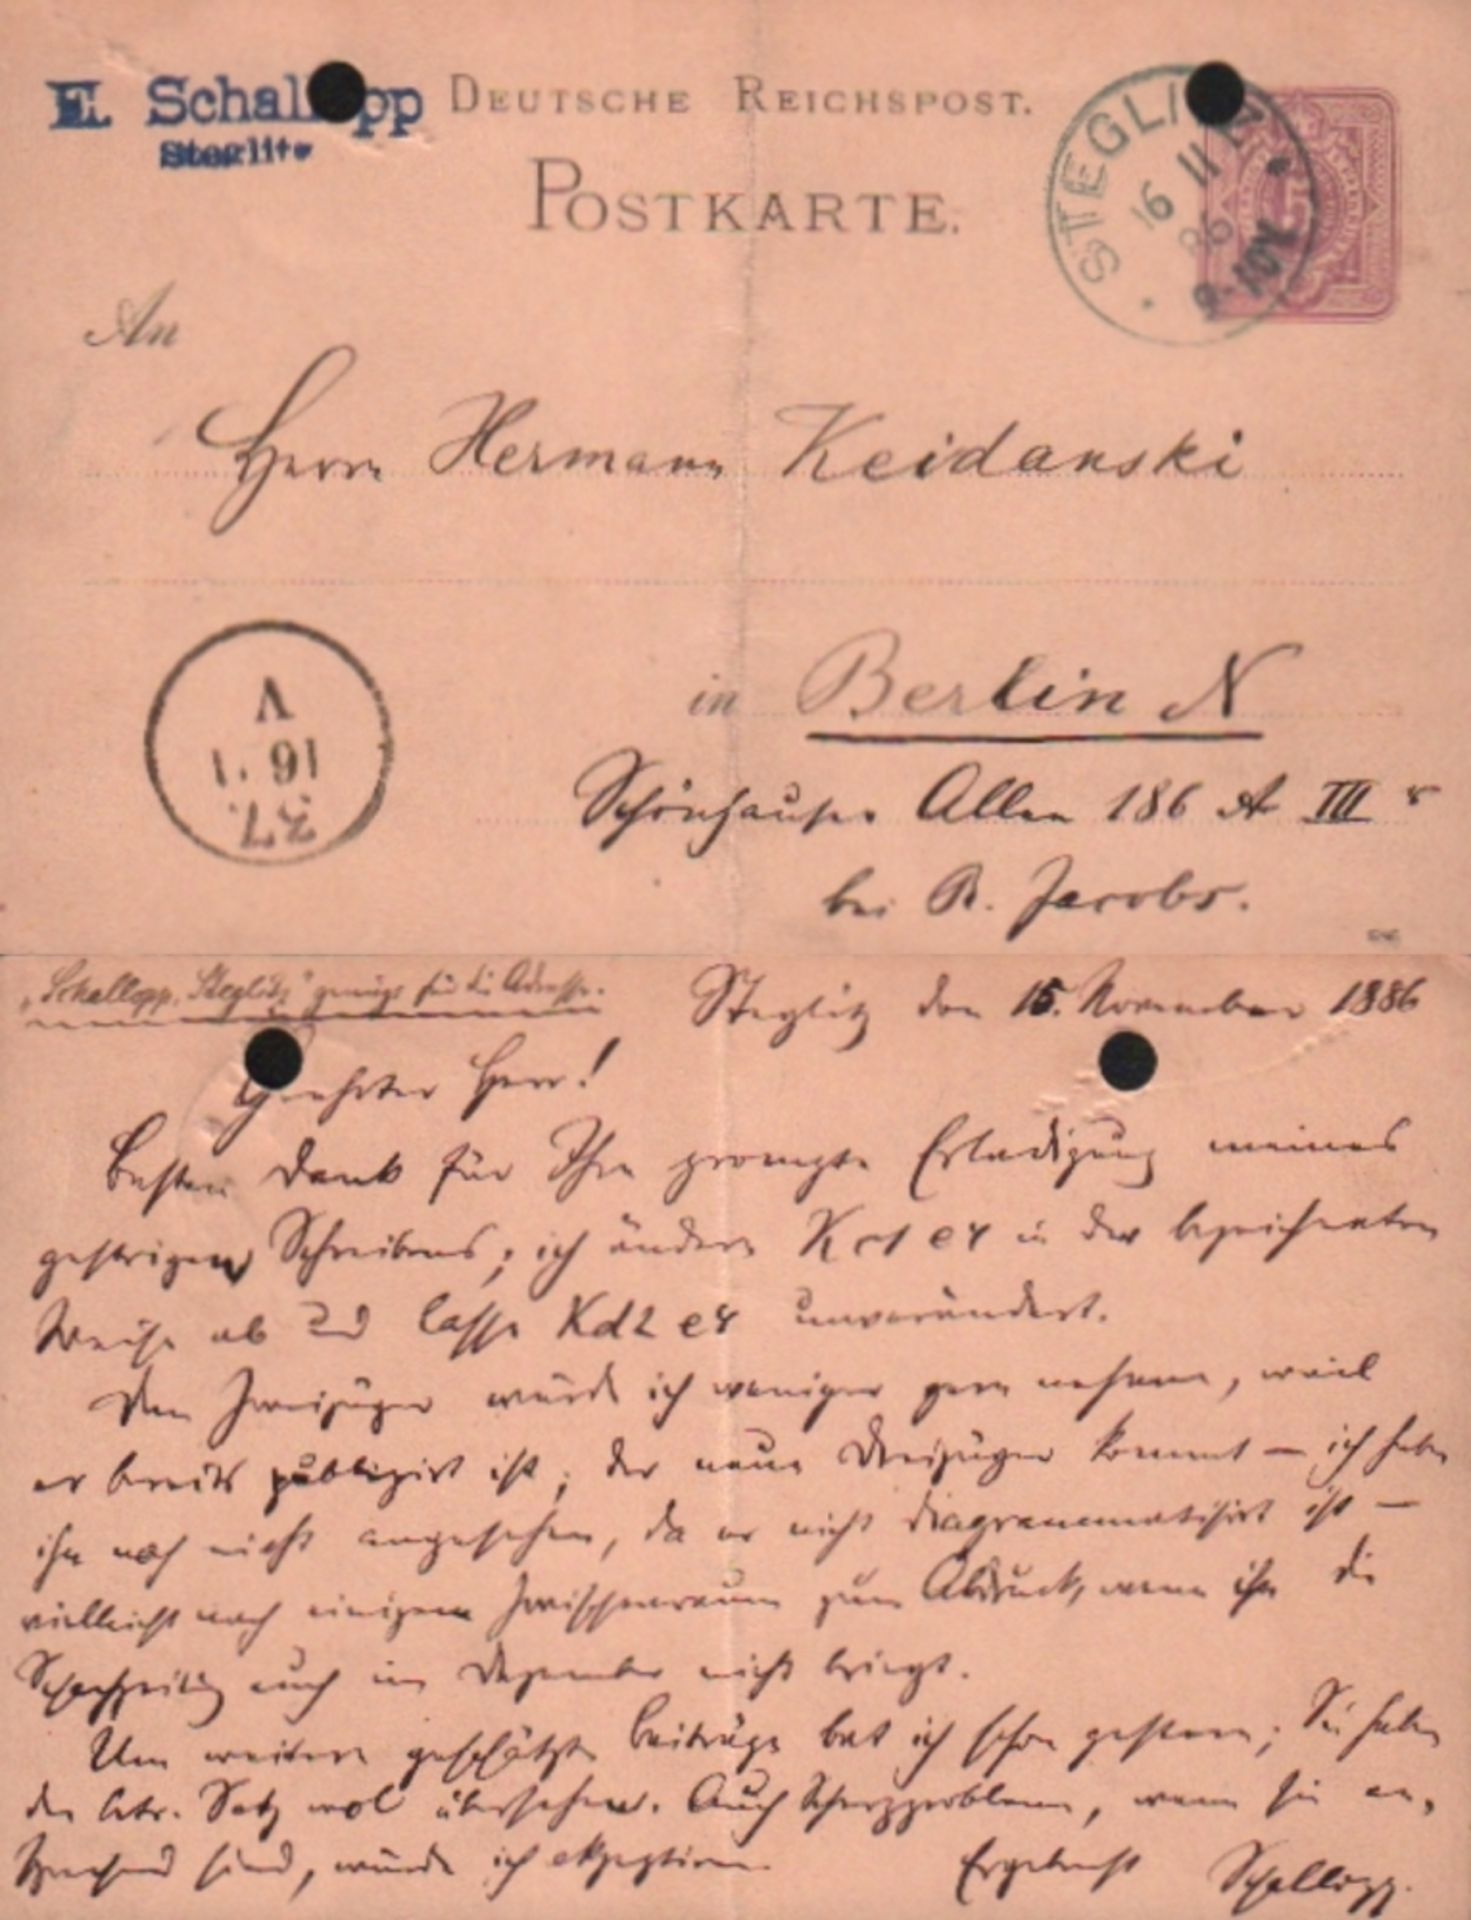 E. Schallopp
Steglitz
DEUTSCHE REICHSPOST.
POSTKARTE.
STEGLITZ
16 11
86
9-10V.
An
Herrn Hermann Keidanski
in Berlin N
Schönhauser Allee 186 A III
bei R. Jacobs.
V
16 11
"Schallopp, Steglitz" genügt für die Adresse.
Steglitz den 15. November 1886
Geehrter Herr!
Besten Dank für Ihre prompte Erledigung meines
gestrigen Schreibens; ich ändere K c1 e4 in der bezeichneten
Weise ab und lasse Kd2 e4 unverändert.
Den Zweizüger würde ich weniger gern nehmen, weil
er bereits publizirt ist; der neue Dreizüger kommt — ich habe
ihn noch nicht angesehen, da er nicht diagrammatisirt ist —
vielleicht nach einigem Zwischenraum zum Abdruck, wenn ihn die
Schachzeitung auch im Dezember nicht bringt.
Um weitere geschätzte Beiträge bat ich schon gestern; Sie haben
den betr. Satz wol übersehen. Auch Scherzprobleme, wenn sie an-
sprechend sind, würde ich akzeptiren.
Ergebenst Schallopp.